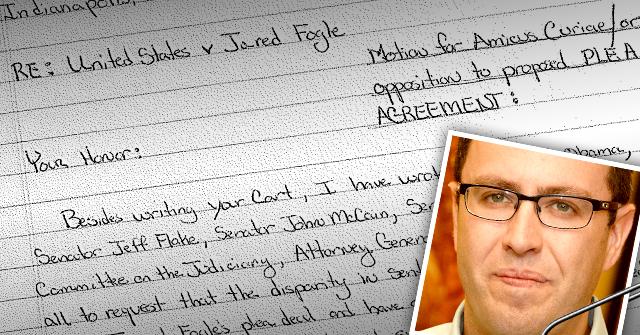 Indianapolis,
RE: United States v Jared Fogle
Motion for Amicus Curiae/or
opposition to proposed PLEA
AGREEMENT:
Your Honor:
Besides writing your Court, I have Obama,
Senator Jeff Flake, Senator John McCain,
Committee on the Judiciary, Attorney
all to request that the disparity in
Fogle's plea deal and have